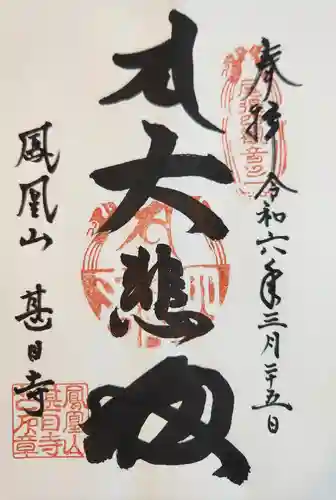 奉拝 令和六年三月二十五日
大悲殿
鳳凰山 甚目寺
鳳凰山
甚目寺
之宗章